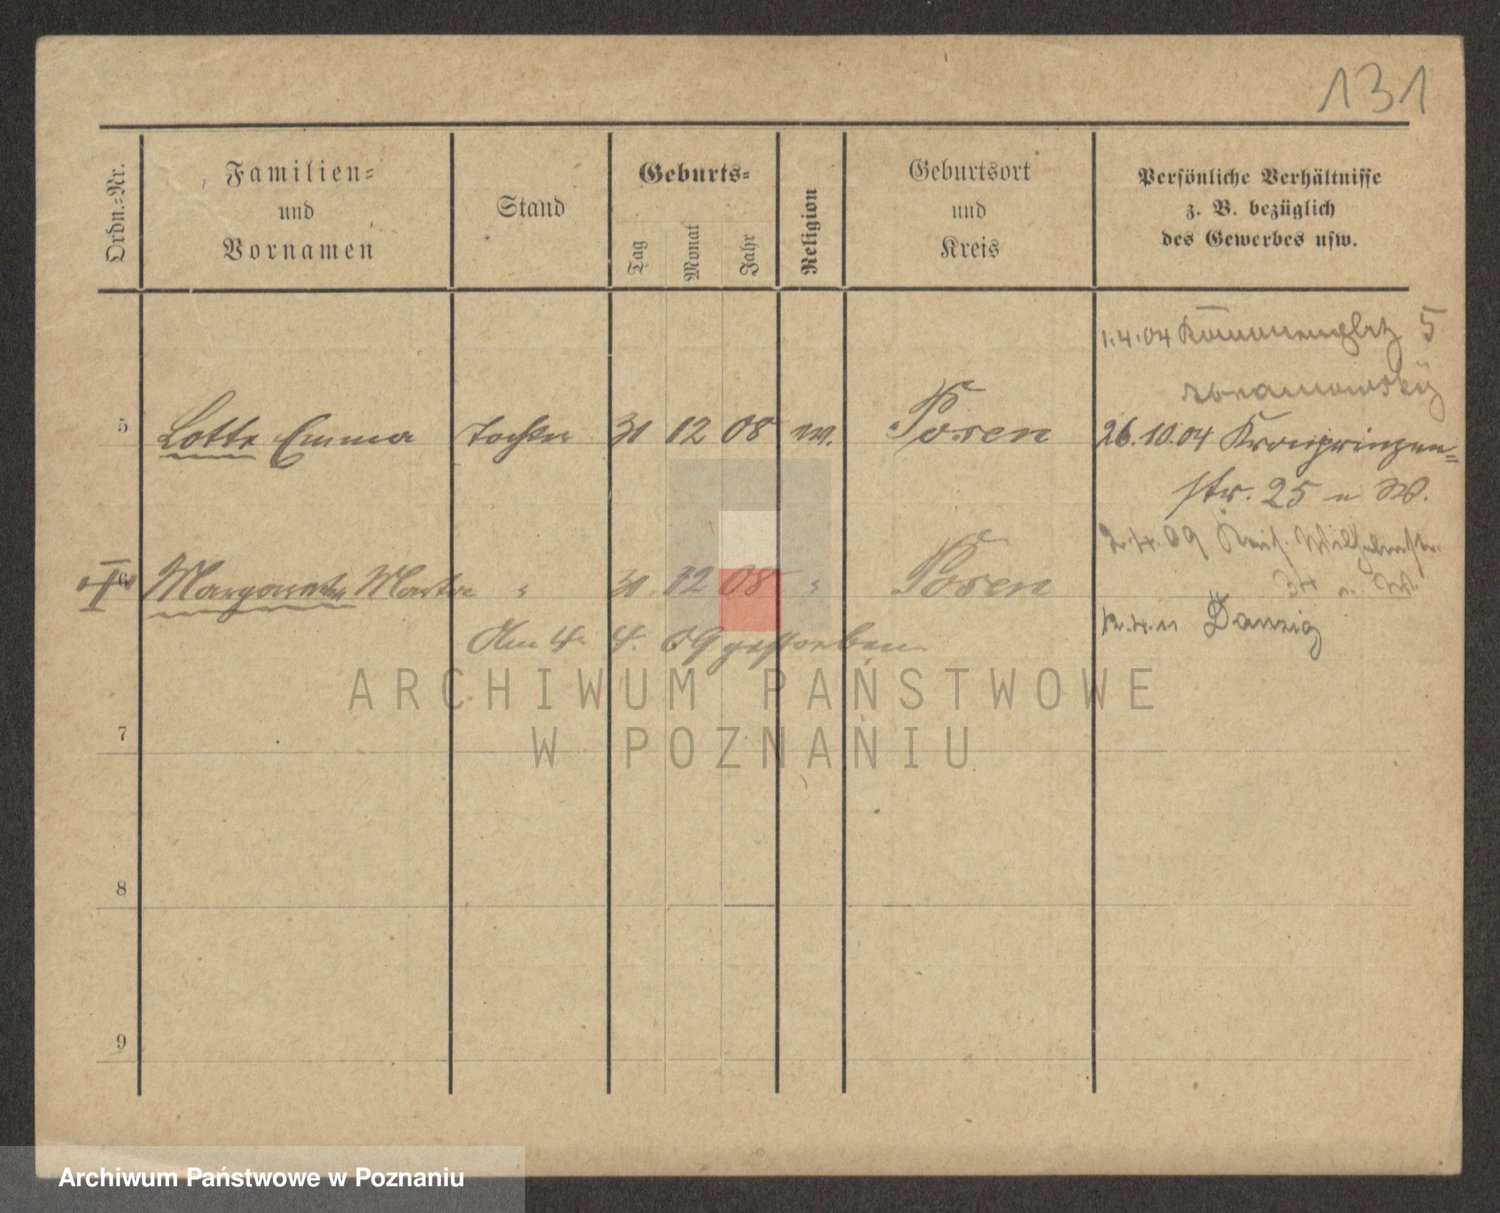 131
Ordn.-Nr.
Familien-
und
Vornamen
Stand
Geburts-
Tag
Monat
Jahr
Religion
Geburtsort
und
Kreis
Persönliche Verhältnisse
z. B. bezüglich
des Gewerbes usw.
1.4.04 5
5 Lotte Emma Tochter 30 12 08 Posen
26.10.04 Kronprinzen-
str. 25 n W.
09 Wilhelmstr.
6 Margarete Marta " 30 12 08 " Posen
Danzig
Am 4. 4. 09 gestorben.
ARCHIWUM PAŃSTWOWE
W POZNANIU
7
8
9
Archiwum Państwowe w Poznaniu